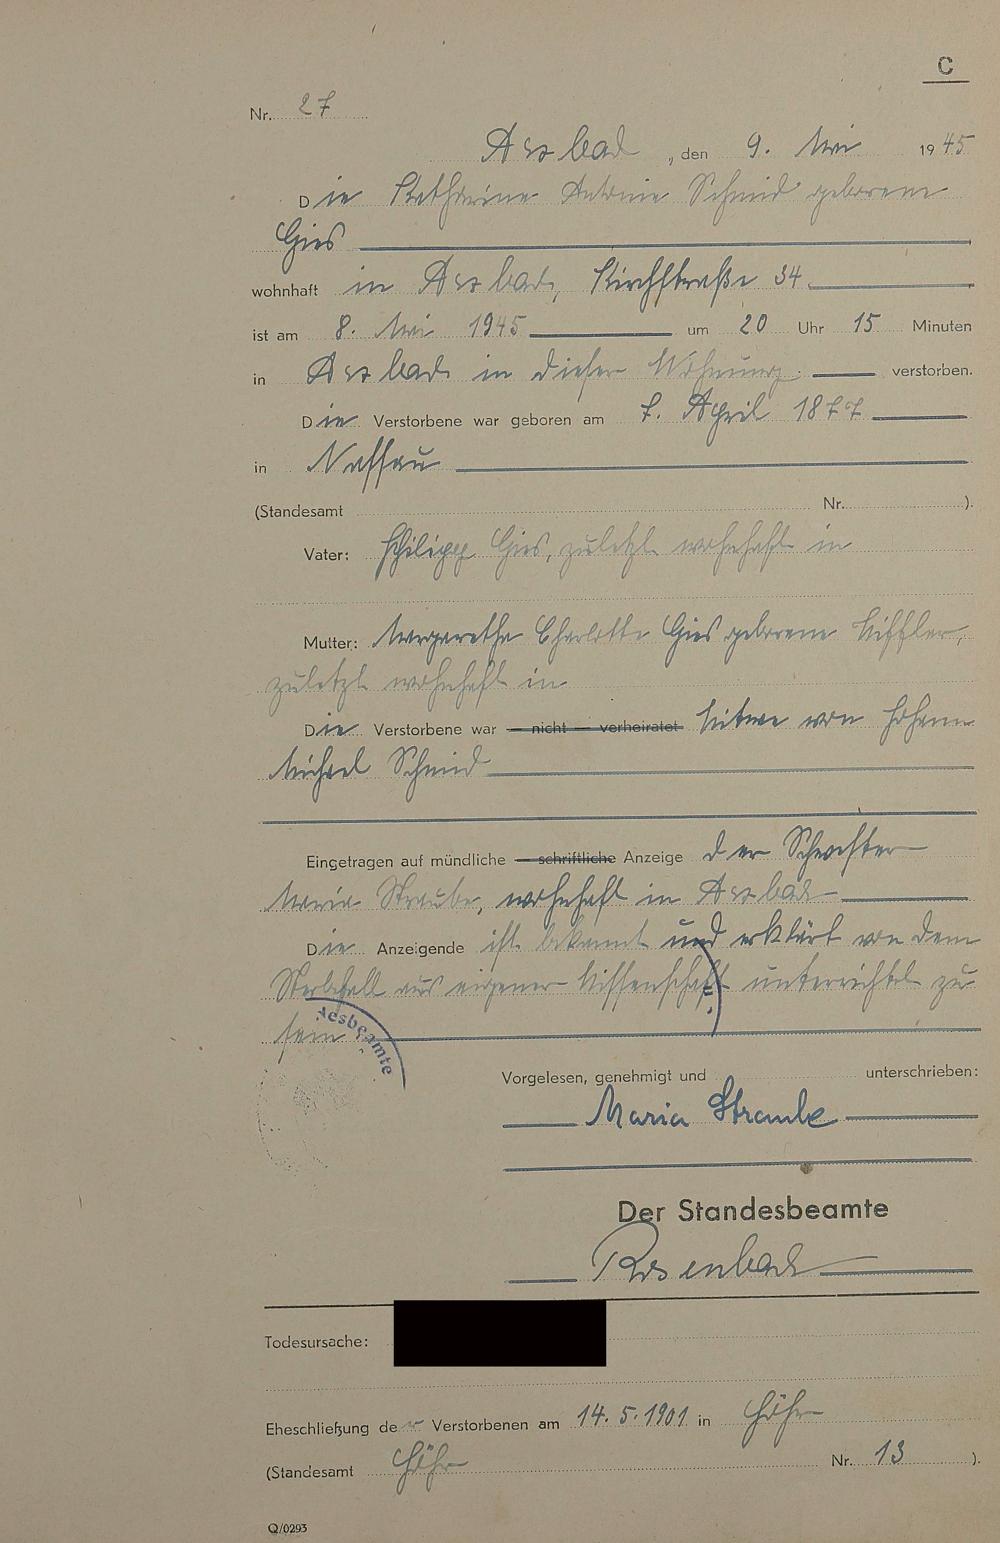 C
Nr. 27
Arzbach, den 9. Mai 1945
Die Katharina Antonie Schmid geborene
Gies
wohnhaft in Arzbach, Kirchstraße 34
ist am 8. Mai 1945 um 20 Uhr 15 Minuten
in Arzbach in dieser Wohnung verstorben.
Die Verstorbene war geboren am 7. April 1877
in Nassau
(Standesamt Nr. ).
Vater: Philipp Gies, zuletzt wohnhaft in
Mutter: Margarethe Charlotte Gies geborene
zuletzt wohnhaft in
Die Verstorbene war nicht verheiratet Witwe von Johann
Michael Schmid
Eingetragen auf mündliche schriftliche Anzeige der Schwester
Maria Straube, wohnhaft in Arzbach
Die Anzeigende ist bekannt und erklärt von dem
Sterbefall aus eigener Wissenschaft unterrichtet zu
sein
desbeamte
Vorgelesen, genehmigt und unterschrieben:
Maria Straube
Der Standesbeamte
Todesursache:
Eheschließung der Verstorbenen am 14.5.1901 in Höhr
(Standesamt Höhr Nr. 13 ).
Q/0293